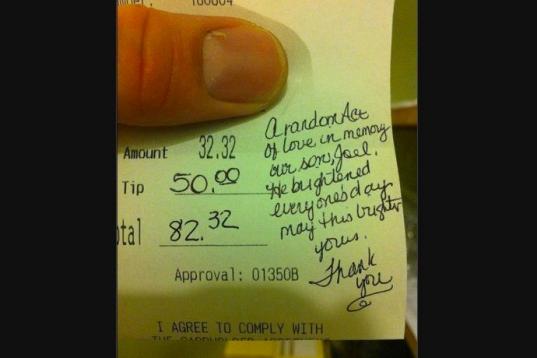 160604
Amount 32.32
Tip 50.00
otal 82.32
A random Act
of love in memory
our son, Joel.
He brightened
everyone's day
may this brighten
yours.
Thank
you
Approval: 01350B
I AGREE TO COMPLY WITH